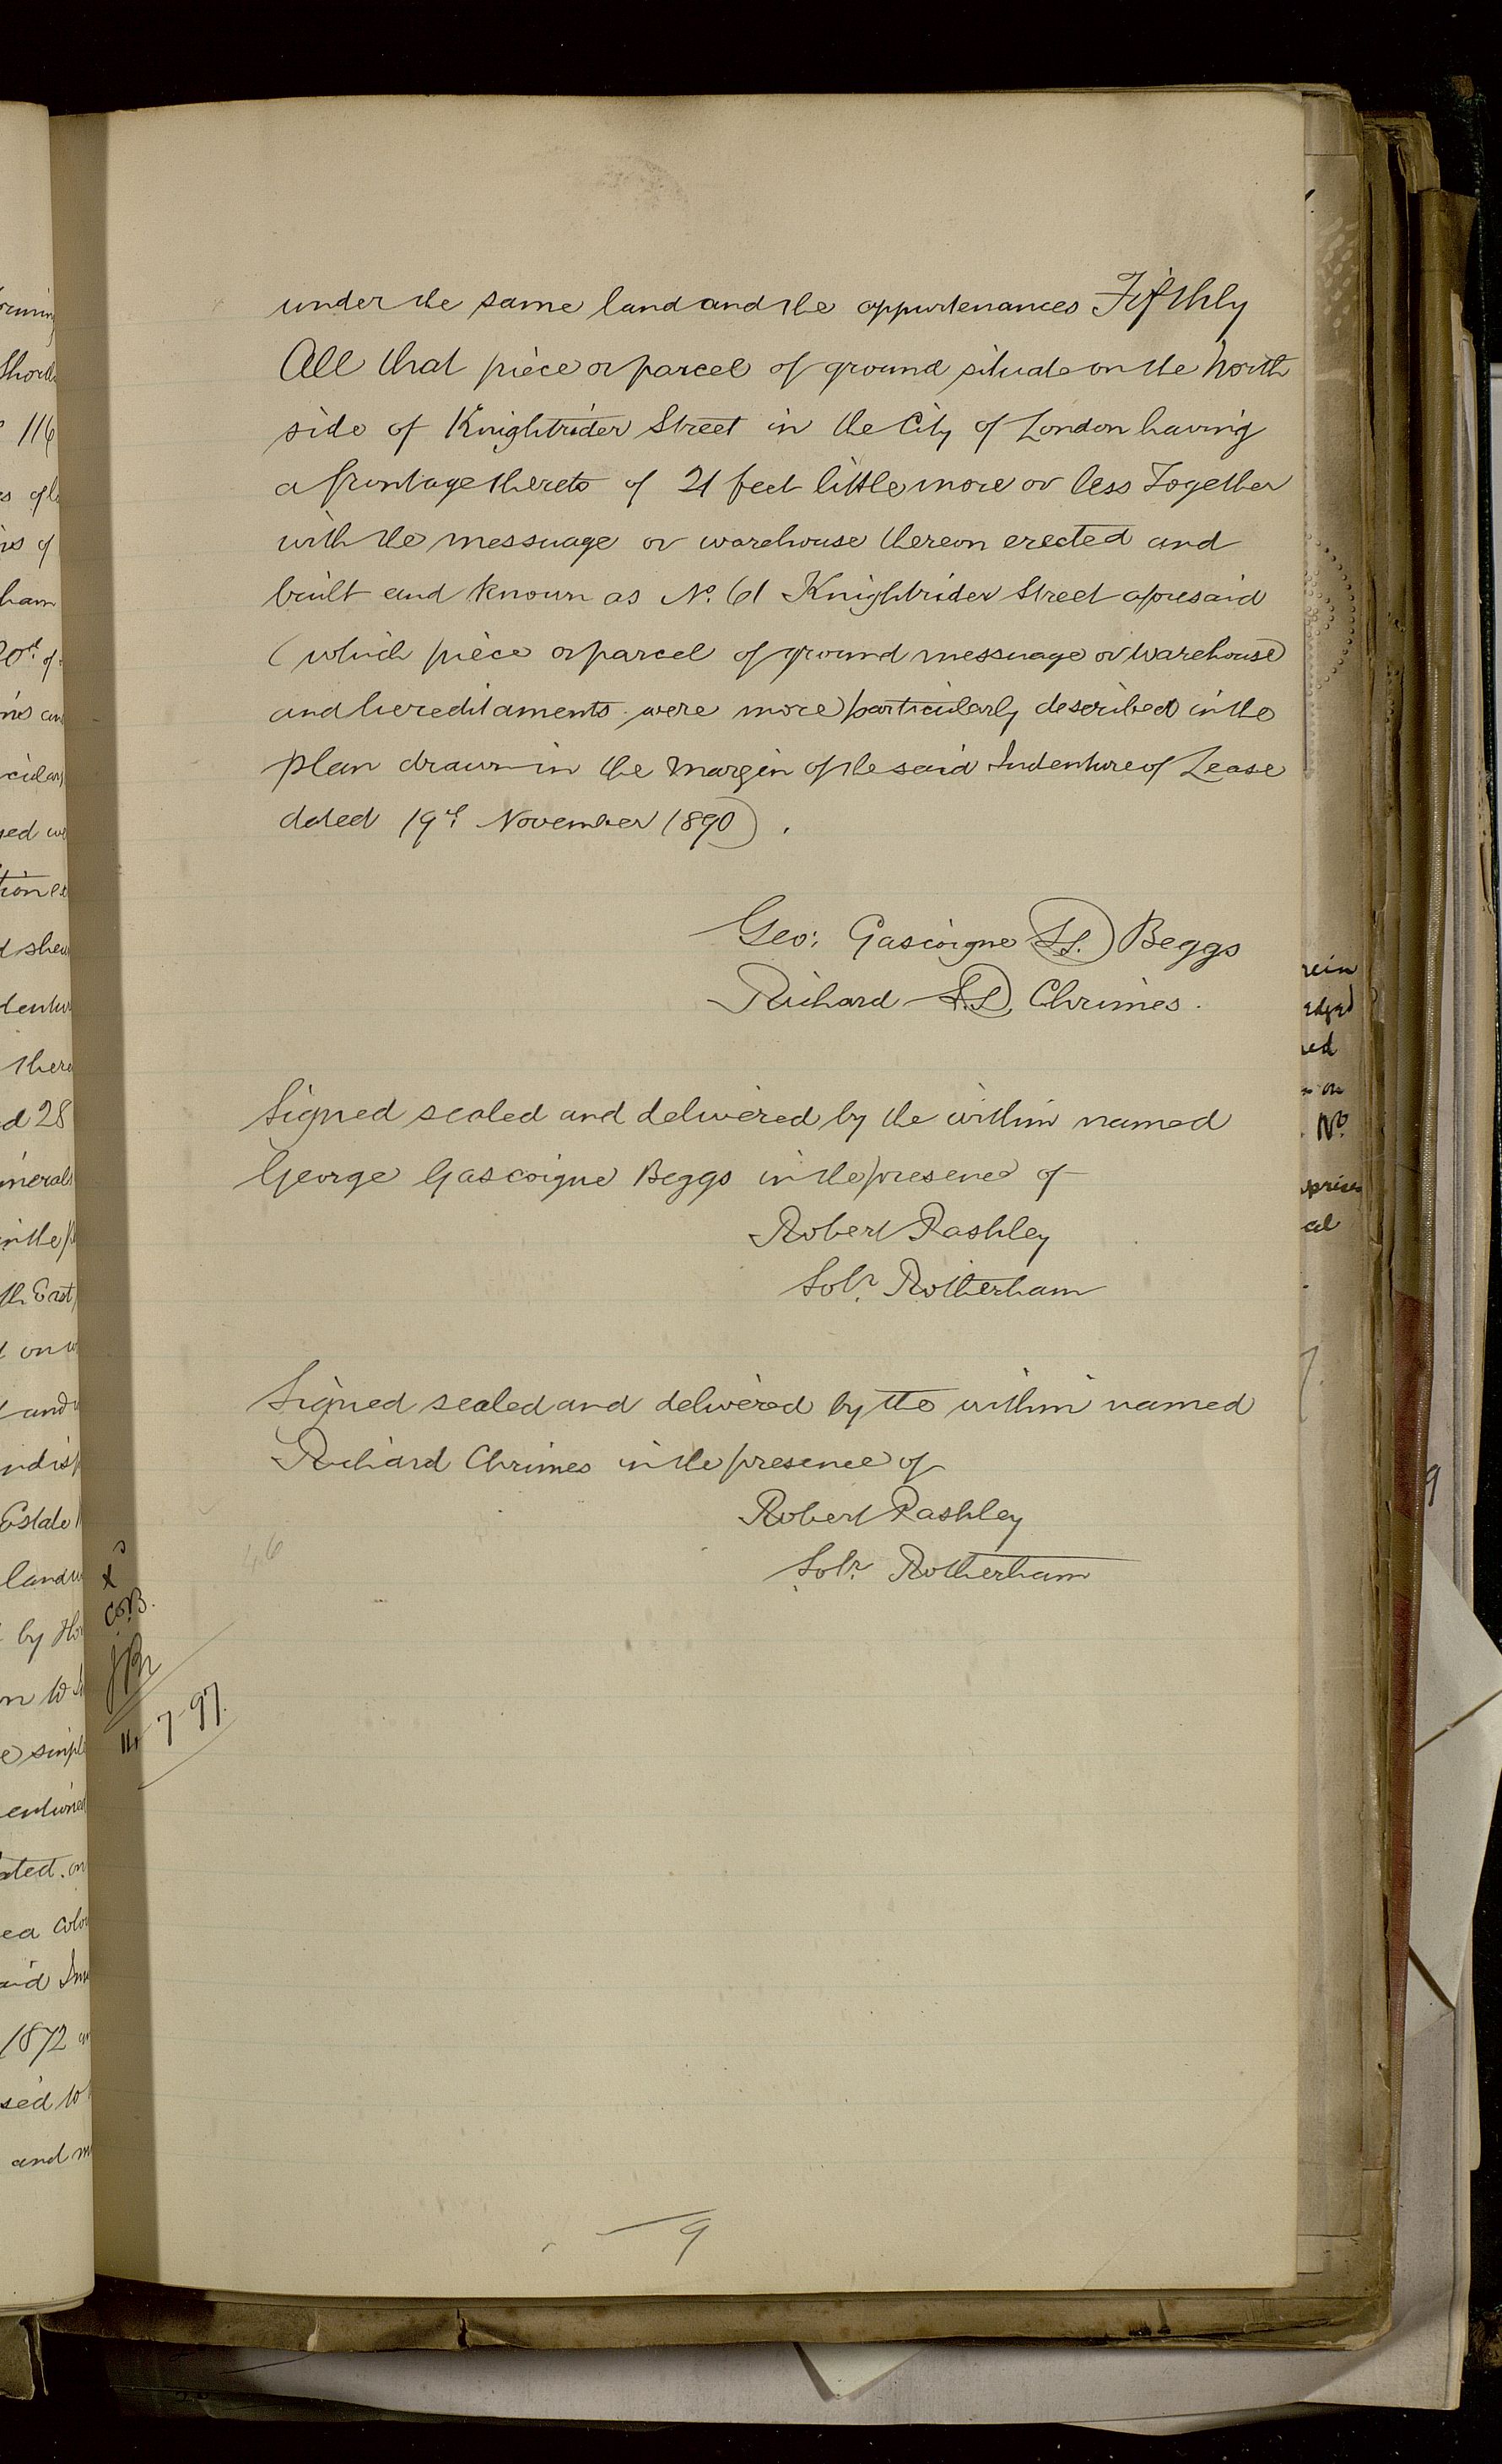 under the same land and the appurtenances Fifthly
All that piece or parcel of ground situate on the North
side of Knightrider Street in the City of London having
a frontage thereto of 21 feet little more or less Together
with the messuage or warehouse thereon erected and
built and known as No. 61 Knightrider Street aforesaid
(which piece or parcel of ground messuage or warehouse
and hereditaments were more particularly described in the
plan drawn in the margin of the said Indenture of Lease
dated 19th November 1890).
Geo: Gascoigne L.S. Beggs
Richard L.S. Chrimes.
Signed sealed and delivered by the within named
George Gascoigne Beggs in the presence of
Robert Pashley
Solr. Rotherham
Signed sealed and delivered by the within named
Richard Chrimes in the presence of
Robert Pashley
Solr. Rotherham
46
14-7-97.
9
116
d 28
in the
th East
on
and
Estate
land
by
1872
sed to
and
No
al
9